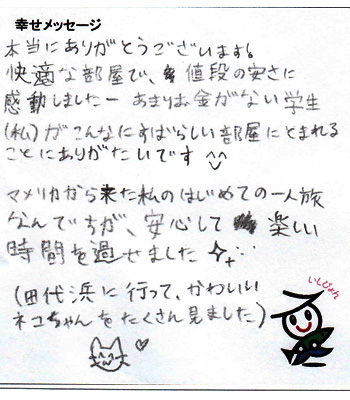 幸せメッセージ
本当にありがとうございます!
快適な部屋で、値段の安さに
感動しましたー あまりお金がない学生
(私)がこんなにすばらしい部屋にとまれる
ことにありがたいです
アメリカから来た私のはじめての一人旅
なんでちが、安心して楽しい
時間を過せました
(田代浜に行って、かわいい
ネコちゃんをたくさん見ました)
いしぴょん